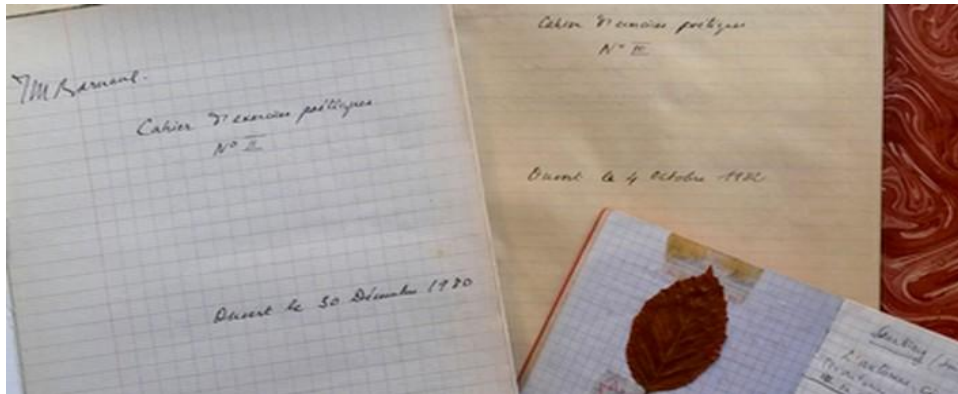 JM Barnaud.
Cahier d'exercices poétiques
N° II
Ouvert le 30 Décembre 1980
Cahier d'exercices poétiques
N° III
Ouvert le 4 Octobre 1982
L'automne